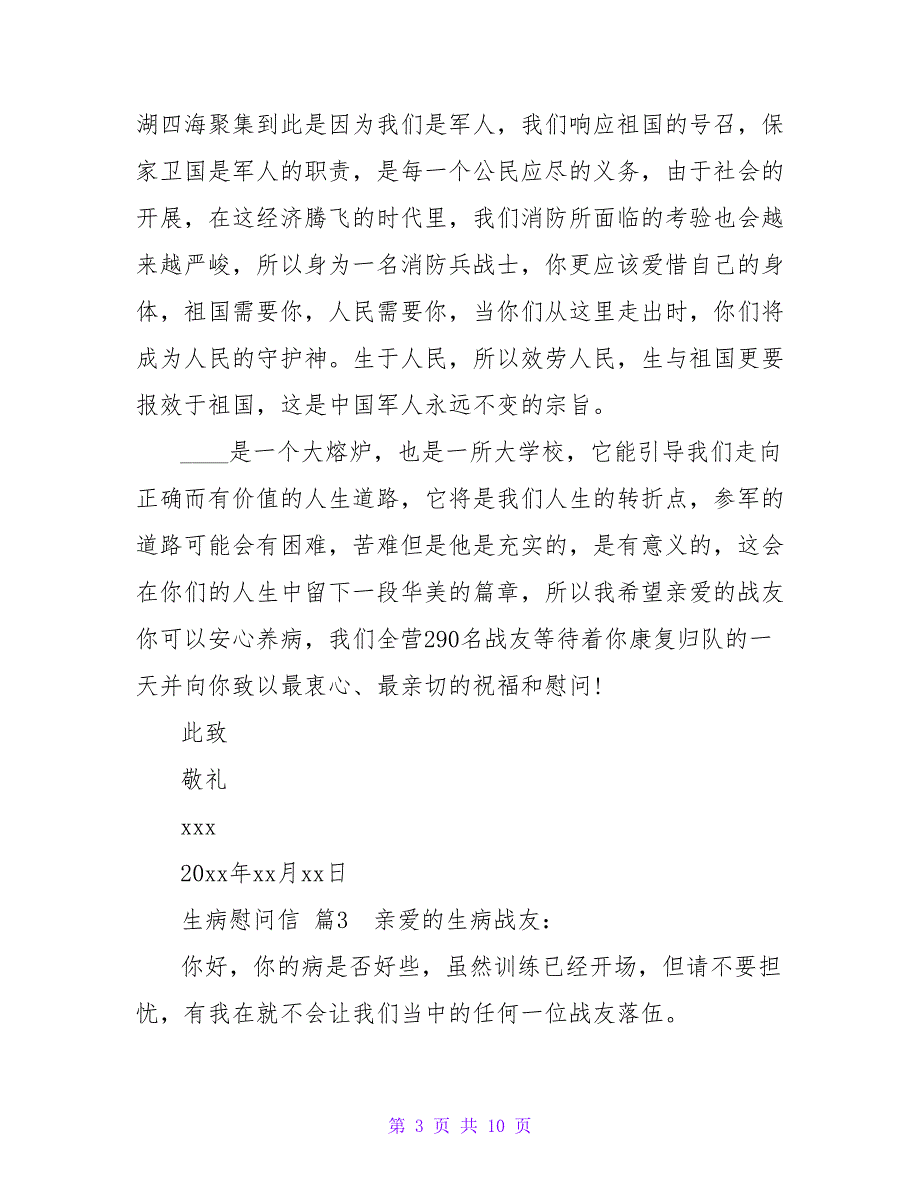 湖四海聚集到此是因为我们是军人，我们响应祖国的号召，保
家卫国是军人的职责，是每一个公民应尽的义务，由于社会的
开展，在这经济腾飞的时代里，我们消防所面临的考验也会越
来越严峻，所以身为一名消防兵战士，你更应该爱惜自己的身
体，祖国需要你，人民需要你，当你们从这里走出时，你们将
成为人民的守护神。生于人民，所以效劳人民，生与祖国更要
报效于祖国，这是中国军人永远不变的宗旨。
____是一个大熔炉，也是一所大学校，它能引导我们走向
正确而有价值的人生道路，它将是我们人生的转折点，参军的
道路可能会有困难，苦难但是他是充实的，是有意义的，这会
在你们的人生中留下一段华美的篇章，所以我希望亲爱的战友
你可以安心养病，我们全营290名战友等待着你康复归队的一
天并向你致以最衷心、最亲切的祝福和慰问!
此致
敬礼
xxx
20xx年xx月xx日
生病慰问信 篇3　亲爱的生病战友：
你好，你的病是否好些，虽然训练已经开场，但请不要担
忧，有我在就不会让我们当中的任何一位战友落伍。
第 3 页 共 10 页